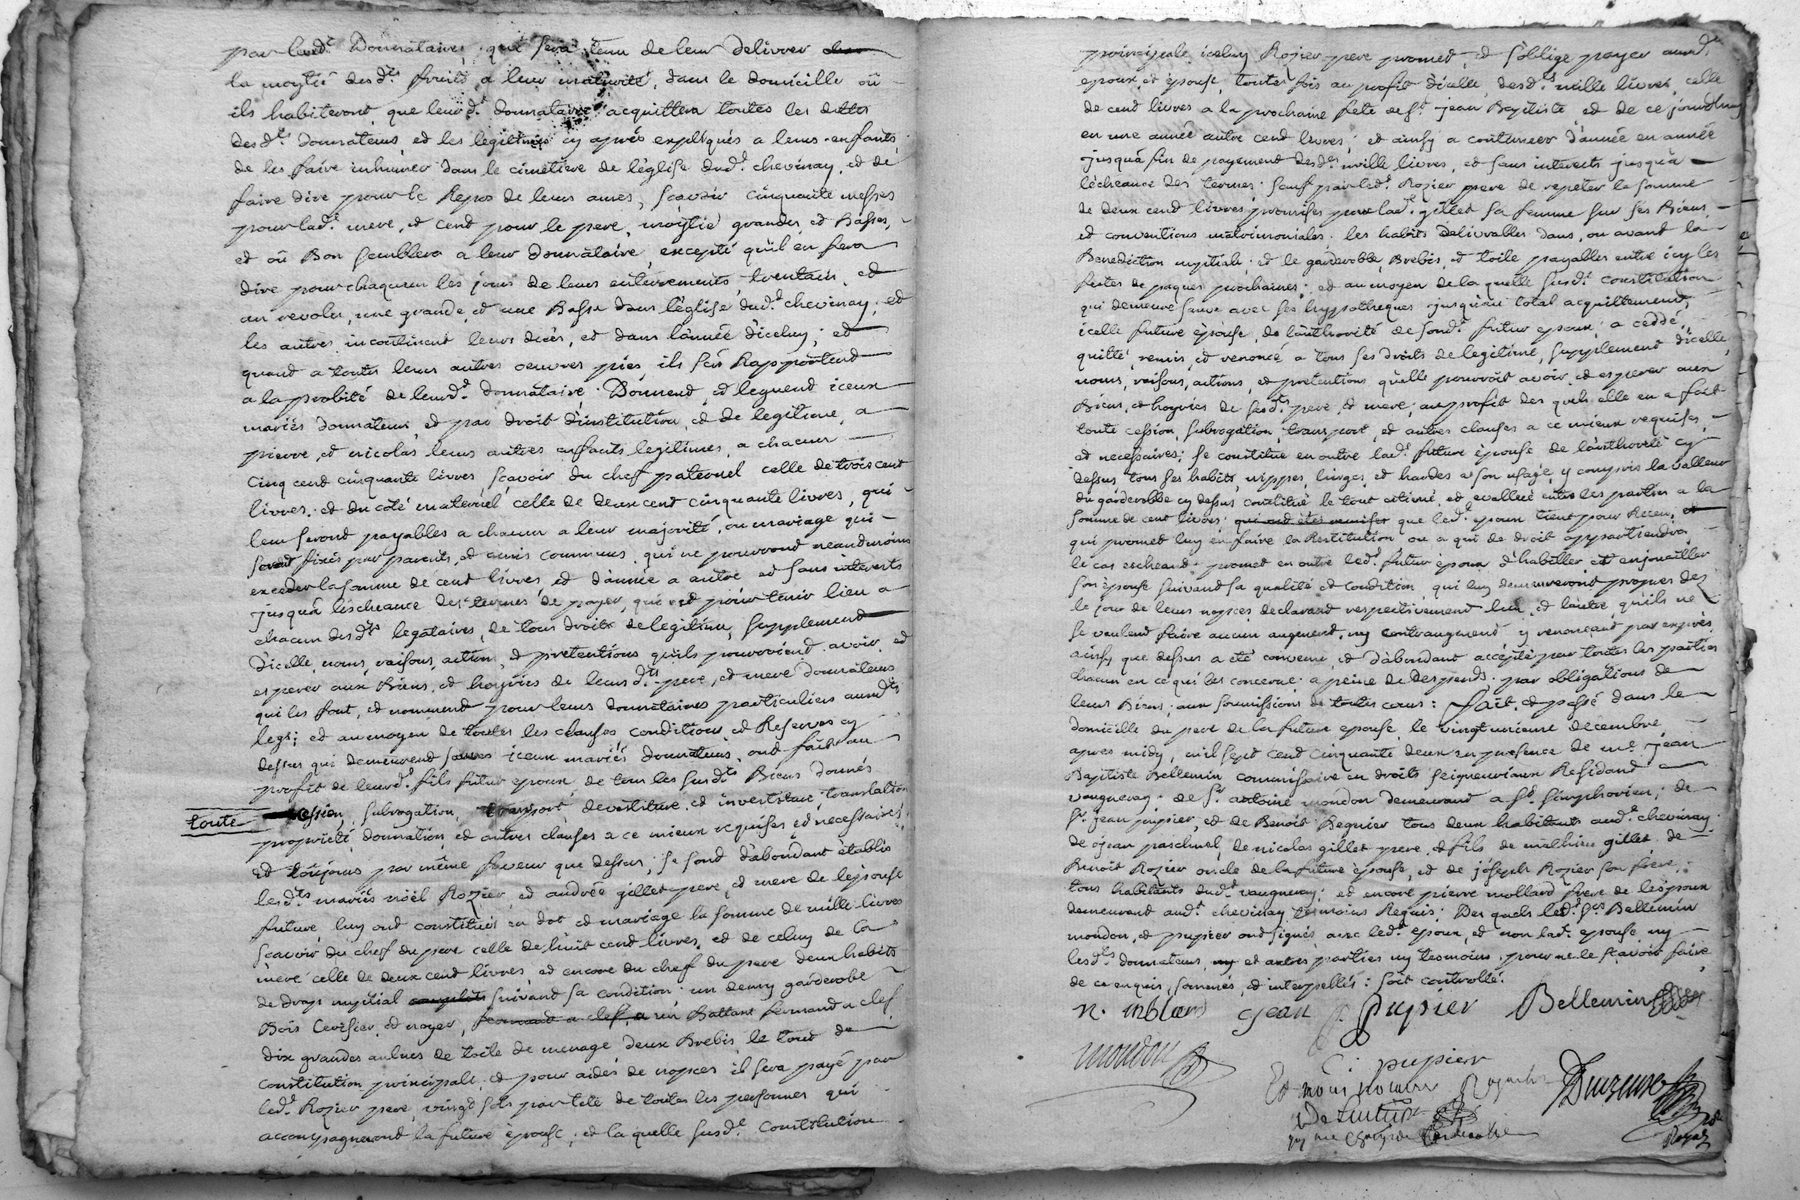 par leurd.t Donnataire, qui sera tenu de leur delivrer
la moytié desd.ts fruits a leur maturité, dans le domicille où
ils habiteront, que leurd.t donnataire acquittera toutes les dettes
desd.ts donnateurs, et les legitimes cy après expliqués a leurs enfants,
de les faire inhumer dans le cimetiere de léglise dud.t chevinay, et de
faire dire pour le Repos de leurs ames, sçavoir cinquante messes
pour lad.t mere, et cent pour le pere, moytié grandes, et Basses,
et où Bon semblera a leur donnataire, excepté qu'il en fera
dire pour chaqu'un les jours de leurs enterrements, trentain, et
au revolu, une grande, et une Basse dans léglise dud.t chevinay, et
les autres incontinent leurs decès, et dans l'année d'iceluy; et
quand a toutes leurs autres oeuvres pies, ils s'en Rapportent
a la probité de leurd.t donnataire. Donnent, et leguent iceux
mariés donnateurs, et par droit d'institution, et de legitime, a
pierre, et nicolas leurs autres enfants legitimes, a chacun
cinq cent cinquante livres sçavoir du chef paternel celle de trois cent
livres, et du coté maternel celle de deux cent cinquante livres, qui
leur seront payables a chacun a leur majorité, ou mariage qui
seront fixés par parents, et amis communs, qui ne pourront neandmoins
exceder la somme de cent livres, et d'année a autre et sans interests
jusqu'a léscheance des termes de payer, qui est pour tenir lieu a
chacun desd.ts legataires, de tous droits de legitime, supplement
d'icelle, noms, raisons, actions, et pretentions qu'ils pourroient avoir, et
esperer aux Biens, et hoyries de leursd.ts pere, et mere donnateurs
qui les font, et nomment pour leurs donnataires particuliers auxd.ts
legs; et au moyen de toutes les clauses conditions, et Reserves cy
dessus qui demeurent sauves iceux mariés donnateurs, ont fait au
profit de leurd.t fils futur epoux, de tous les susd.ts Biens donnés
toute cession, subrogation, transport, devestiture, et investiture, translation
propriété, donnation, et autres clauses a ce mieux requises et necessaires;
et toujours par même faveur que dessus; se sont d'abondant etablis
lesd.ts mariés noël Rozier, et andrée gillet pere, et mere de lepouse
future, luy ont constitués en dot et mariage la somme de mille livres
sçavoir du chef du pere celle de huit cent livres, et de celuy de la
mere celle de deux cent livres, et encore du chef du pere deux habits
de draps nuptial suivant sa condition, un demy garderobe
Bois Cerisier, et noyer, un Battant fermant a clef,
dix grandes aulnes de toile de menage, deux Brebis, le tout de
constitution principale, et pour aides de nopces il sera payé par
led.t Rozier pere, vingt sols par tete de toutes les personnes qui
accompagneront la future epouse; et la quelle susd.te constitution
principale iceluy Rozier pere promet, et s'oblige payer auxd.ts
epoux, et épouse, toutes fois au profit d'icelle, desd.ts mille livres, celle
de cent livres a la prochaine fete de S.t jean Baptiste, et de ce jourd'huy
en une année autre cent livres, et ainsy a continuer d'année en année
jusqu'a fin de payement desd.ts mille livres, et sans interests jusqu'a
lécheance des termes: sauf par led.t Rozier pere de repeter la somme
de deux cent livres promises par lad.t gillet sa femme sur ses Biens,
et conventions matrimoniales. les habits delivrables dans, ou avant la
Benediction nuptiale, et le garderobbe, Brebis, et toile payables entre icy les
festes de paques prochaines; et au moyen de la quelle susd.t constitution
qui demeure sauve avec ses hypotheques jusqu'au total acquittement,
icelle future epouse, de l'authorité de sond.t futur epoux, a ceddé,
quitté, remis, et renoncé a tous ses droits de legitime, supplement d'icelle,
noms, raisons, actions, et pretentions qu'elle pourroit avoir, et esperer aux
Biens, et hoyries de sesd.ts pere, et mere; au profit des quels elle en a fait
toute cession, subrogation, transport, et autres clauses a ce mieux requises,
et necessaires; se constitue en outre lad.t future épouse de l'authorité cy
dessus, tous ses habits, nippes, linges, et hardes a son usage, y compris la valleur
du garderobbe cy dessus constitué le tout estimé, et evallué entre les parties a la
somme de cent livres, que led.t epoux tient pour Receu,
qui promet luy en faire la Restitution ou a qui de droit appartiendra
le cas escheant. promet en outre led.t futur epoux d'habiller, et enjoualler
son épouse suivant sa qualité et condition, qui luy demeureront propres dez
le jour de leurs nopces declarant respectivement l'un, et l'autre qu'ils ne
se veulent faire aucun augment, ny contraugment y renonceant par exprès,
ainsy que dessus a eté convenu, et d'abondant accepté par toutes les parties
chacun en ce qui les concerne. a peine de despends. par obligations de
leurs Biens; aux soumissions de toutes cours: fait, et passé dans le
domicille du pere de la future epouse, le vingt unieme decembre
apres midy, mil sept cent cinquante deux en presence de m.e Jean
Baptiste Bellemin commissaire en droits seigneuriaux Residant
vaugneray. de S.r antoine mondon demeurant a S.t Simphorien; de
S.r jean pupier, et de Benoit Regnier tous deux habitants aud.t chevinay.
de jean paschal, de nicolas gillet pere, et fils de mathieu gillet, de
Benoit Rozier oncle de la future épouse, et de joseph Rozier son frere,
tous habitants dud.t vaugneray; et encore pierre mollard frere de lepoux
demeurant aud.t chevinay tesmoins Requis; Des quels led.ts S.rs Bellemin
mondon, et pupier ont signés avec led.t epoux, et non lad.t epouse ny
lesd.ts donnateurs, et autres parties ny tesmoins, pour ne le sçavoir faire
de ce enquis, sommés, et interpellés: soit controllé.
jean pupier Bellemin
mondon
pupier